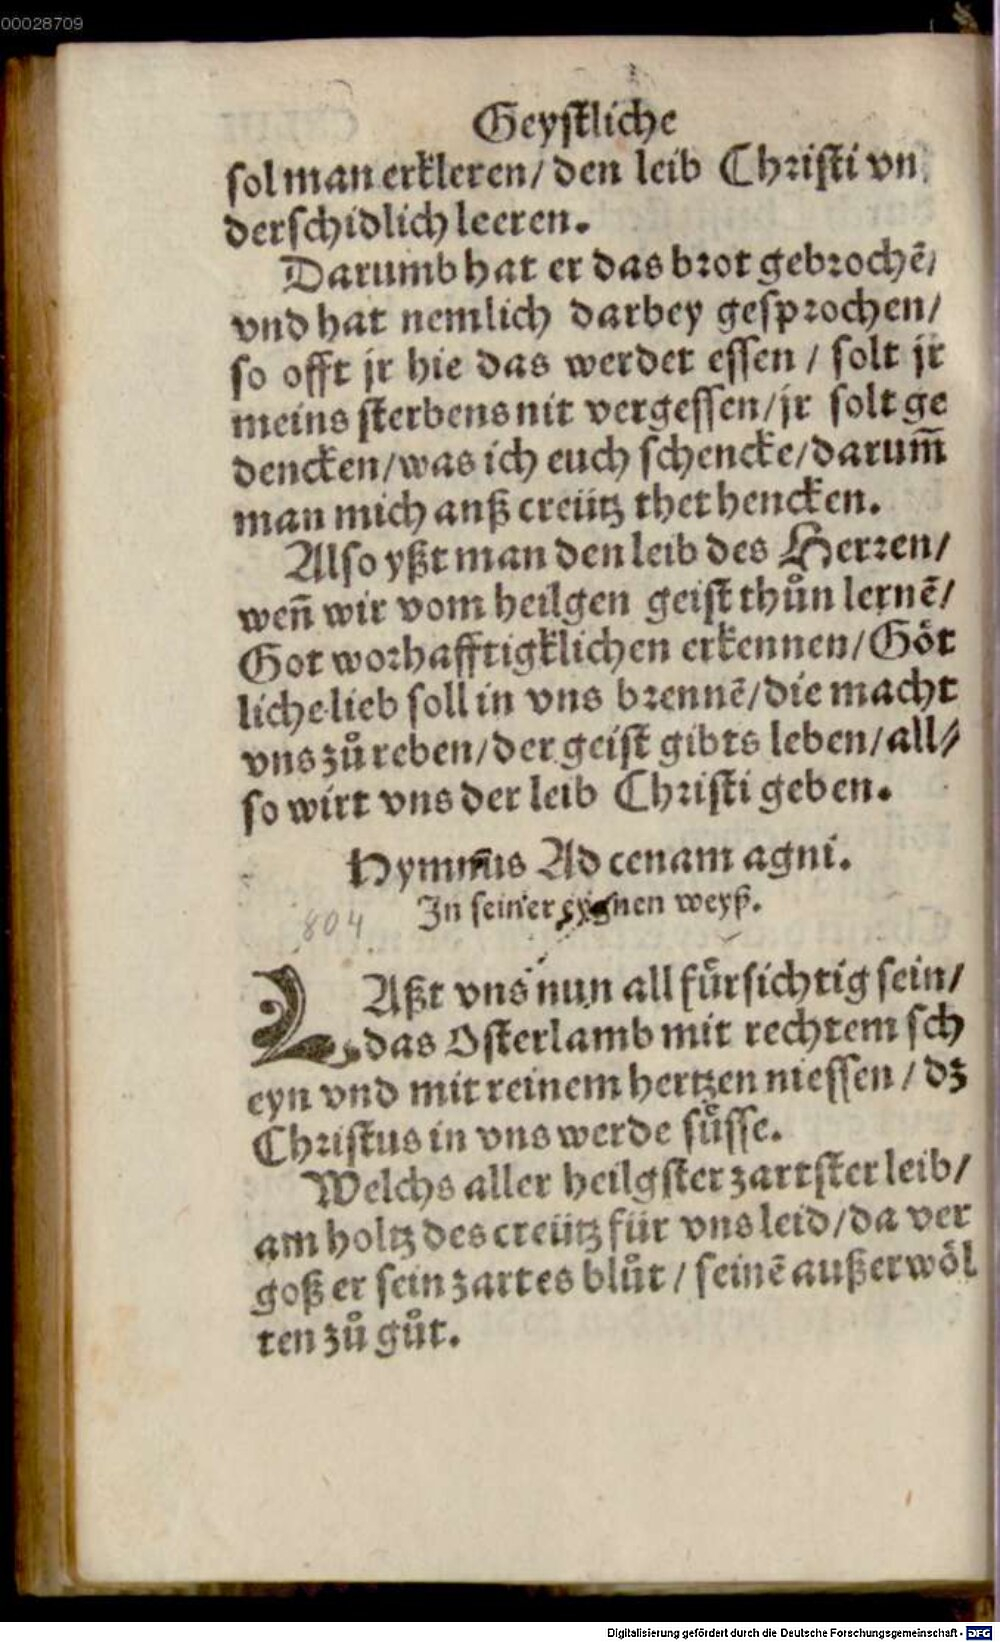 00028709
Geystliche
sol man erkleren/ den leib Christi vn
derschidlich leeren.
Darumb hat er das brot gebrochē/
vnd hat nemlich darbey gesprochen/
so offt jr hie das werdet essen / solt jr
meins sterbens nit vergessen/jr solt ge
dencken/was ich euch schencke/darum̄
man mich anß creütz thet hencken.
Also yßt man den leib des Herren/
weñ wir vom heilgen geist thůn lernē/
Got worhafftigklichen erkennen/Göt
liche lieb soll in vns brennē/die macht
vns zů reben/der geist gibts leben/all⸗
so wirt vns der leib Christi geben.
Hymn̄us Ad cenam agni.
In seiner eygnen weyß.
804
LAßt vns nun all fürsichtig sein/
das Osterlamb mit rechtem sch
eyn vnd mit reinem hertzen niessen / dz
Christus in vns werde süsse.
Welchs aller heilgster zartster leib/
am holtz des creütz für vns leid/da ver
goß er sein zartes blůt / seinē außerwöl
ten zů gůt.
Digitalisierung gefördert durch die Deutsche Forschungsgemeinschaft - DFG